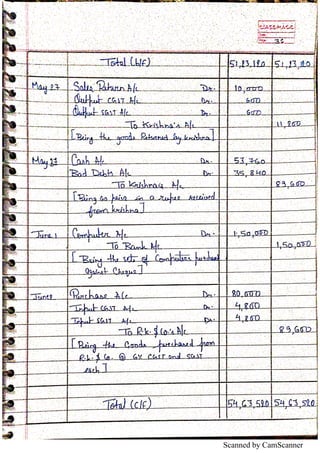 classmate
Total (b/F) 51,23,120 51,23,120
May 27 Sales Return A/c Dr. 10,000
Output CGST A/c Dr. 600
Output SGST A/c Dr. 600
To Krishna's A/c 11,200
[Being the goods Returned by Krishna]
May 27 Cash A/c Dr. 53,760
Bad Debts A/c Dr. 35,840
To Krishna's A/c 89,600
[Being 60 paise in a rupee received
from Krishna]
June 1 Computer A/c Dr. 1,50,000
To Bank A/c 1,50,000
[Being the sets of Computers purchased
against Cheque]
June Purchase A/c Dr. 80,000
Input CGST A/c Dr. 4,800
Input SGST A/c Dr. 4,800
To R.K. & Co.'s A/c 89,600
[Being the Goods purchased from
R.K. & Co. @ 6% CGST and SGST
each]
Total (C/F) 54,63,520 54,63,520
Scanned by CamScanner